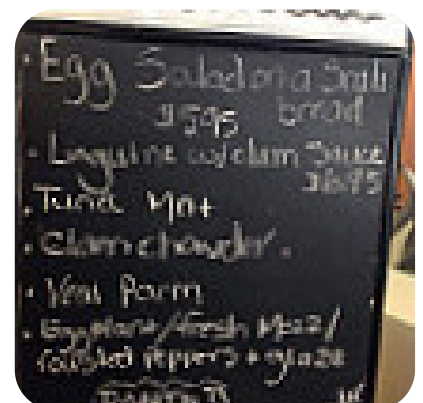 · Egg Salad on a Scali
$5.95 bread
· Linguine w/clam Sauce
$16.95
· Tuna Melt
· Clam chowder.
· Veal Parm
· Eggplant/fresh Mozz/
roasted Peppers + glaze